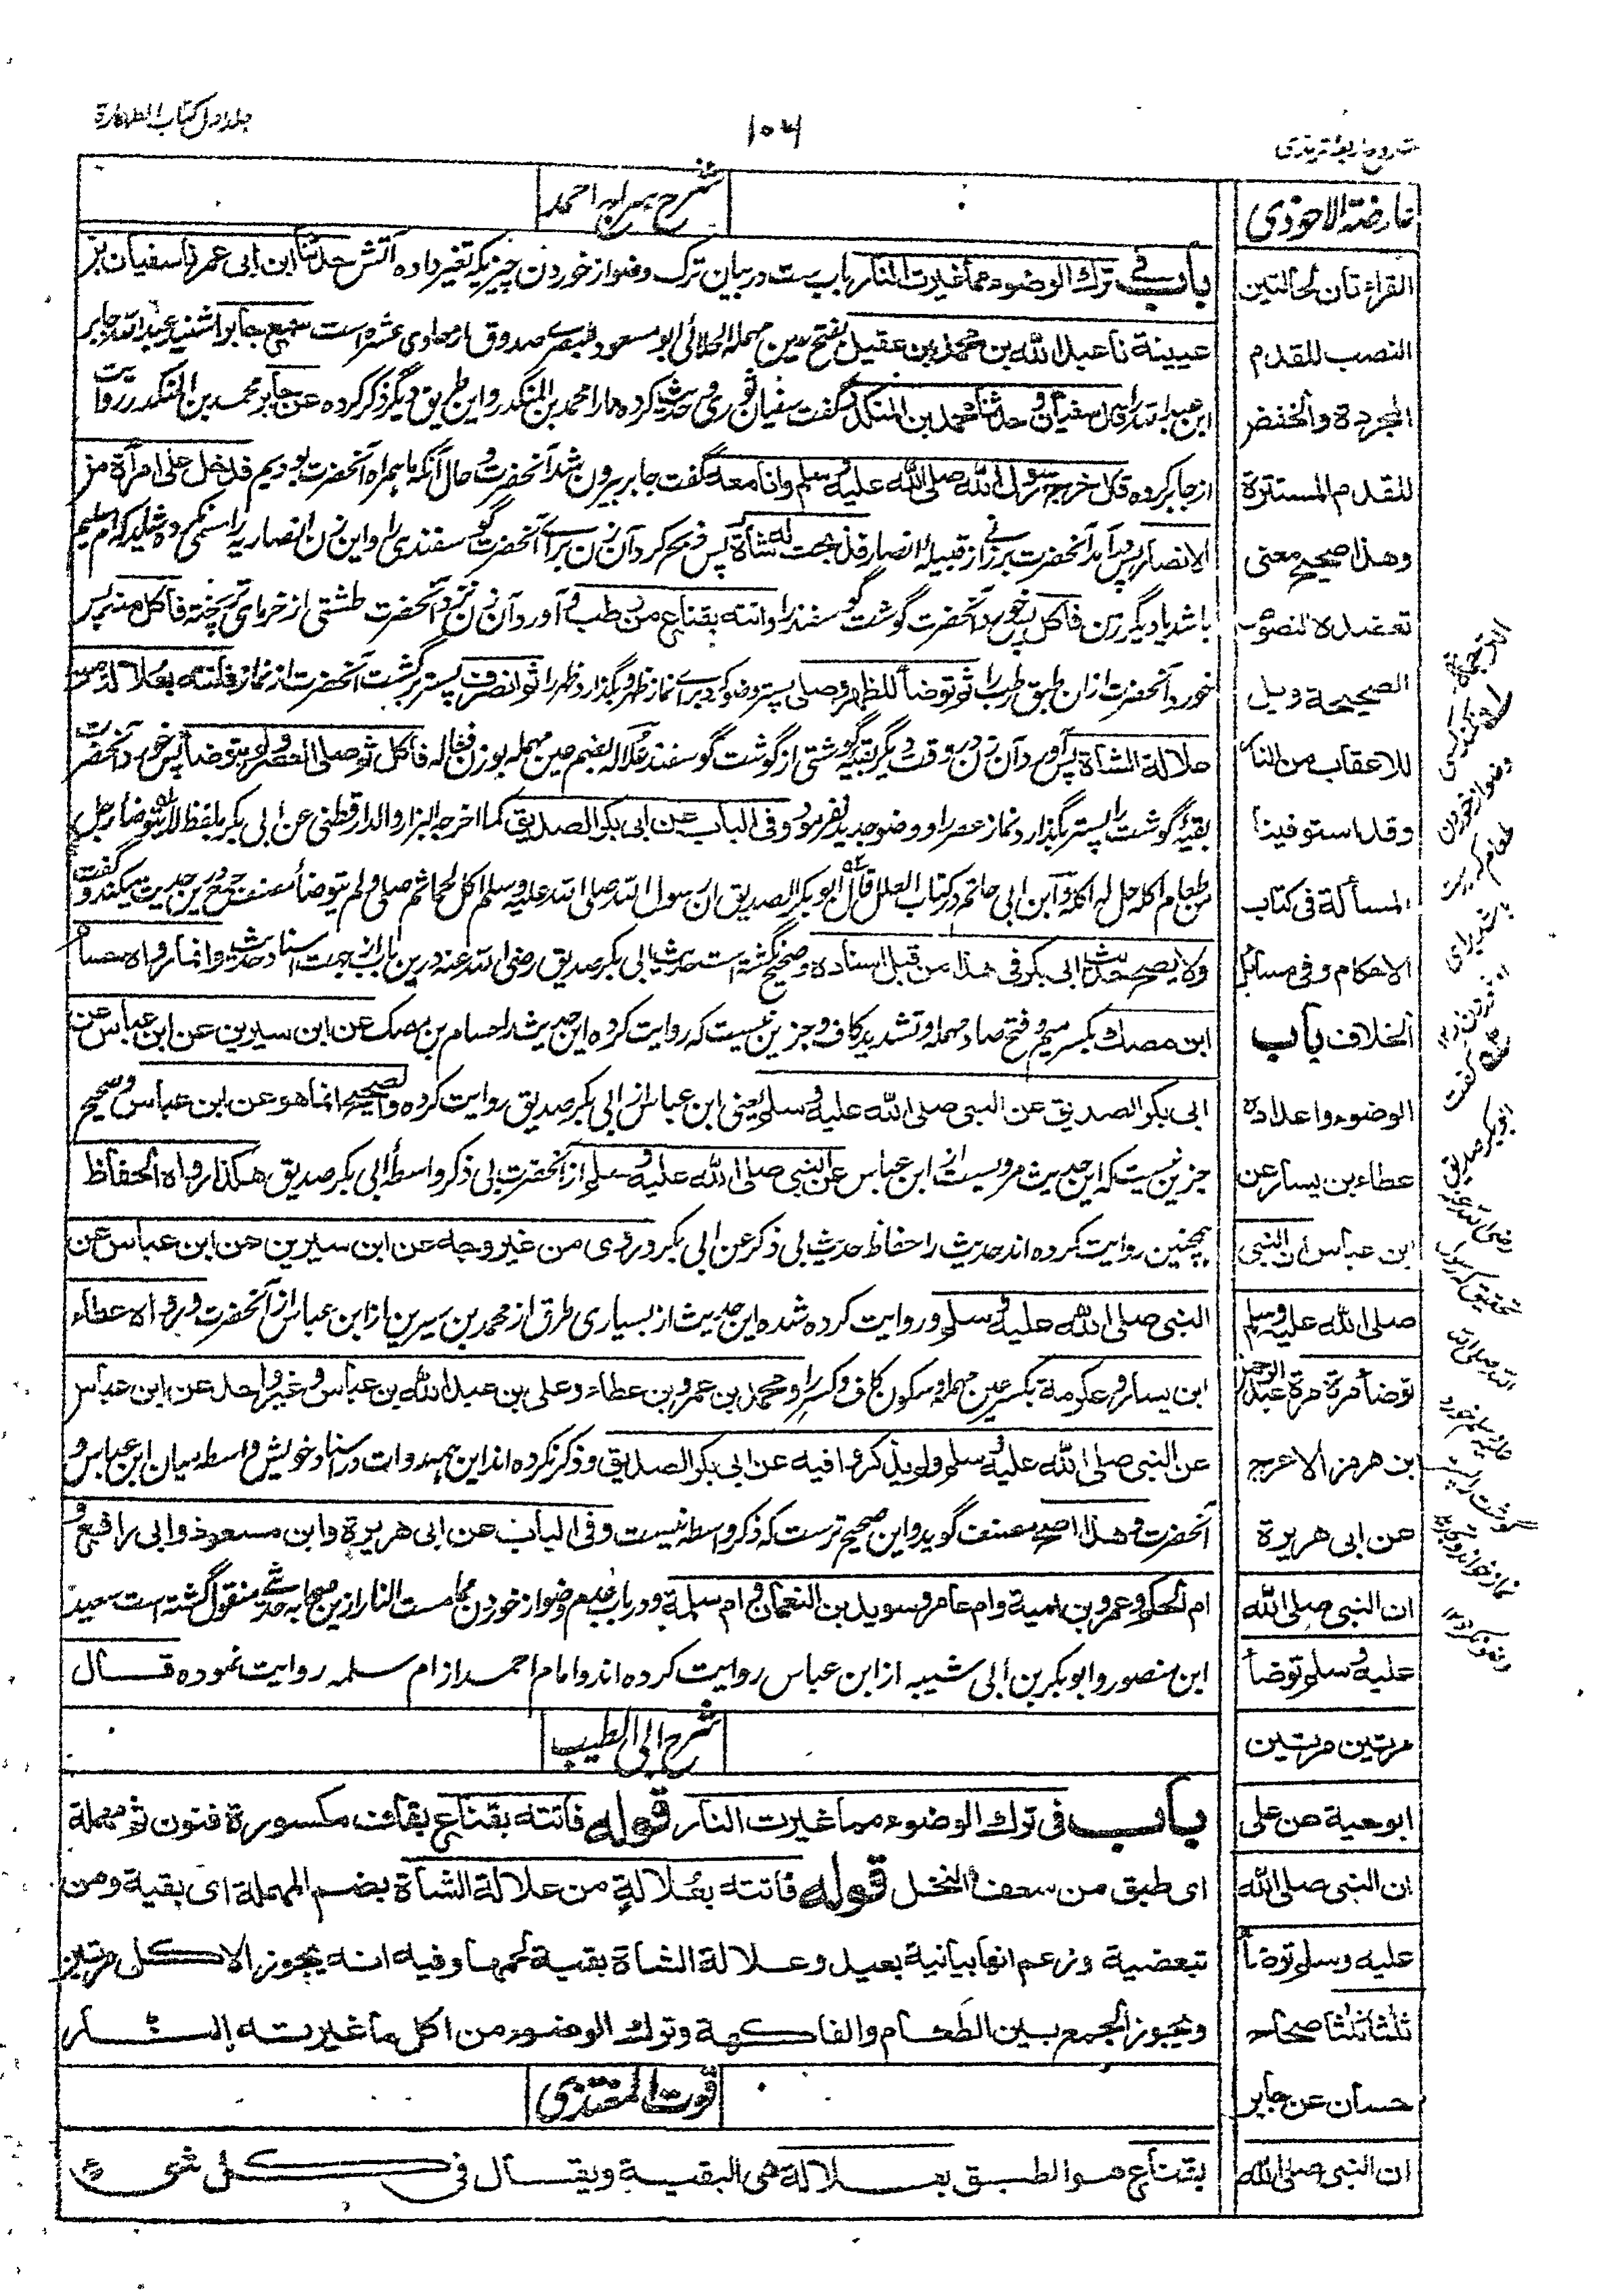 جلد اول کتاب الطهارة
۱۰۴
شروح اربعه ترمذی
شرح سراج احمد
باب فی ترك الوضوء مما غیرت النار باب ست در بیان ترک وضو از خوردن چیزیکه تغیر داده آتش حدثنا ابن ابی عمر نا سفیان بن
عیینة نا عبد الله بن محمد بن عقیل بفتح عین مهمله الهلالی ابو مسعود بصری صدوق از حادی عشره است سمع جابرا شنید عبد الله جابر
ابن عبد الله را قال سفیان و حدثنا محمد بن المنکدر گفت سفیان ثوری و حدیث کرده ما را محمد بن المنکدر و این طریق دیگر ذکر کرده عن جابر محمد بن المنکدر روایت
از جابر کرده قال خرج رسول الله صلی الله علیه وسلم وانا معه گفت جابر بیرون شد آنحضرت و حال آنکه ما همراه آنحضرت بودیم فدخل علی امرأة من
الانصار پس در آمد آنحضرت بر زنی از قبیلۂ انصار فذبحت له شاة پس ذبح کرد آن زن برای آنحضرت گوسفندی را و این زن انصاریه را سنمی کرده شاید که ام سلیم
باشد یا دیگر زن فاکل پس خورد آنحضرت گوشت گوسفند را واتته بقناع من رطب و آورد آن زن نزد آنحضرت طشتی از خرمای تر پخته فاکل منه پس
خورد آنحضرت ازان طبق رطب را ثم توضأ للظهر وصلی پستر وضو کرد برای نماز ظهر و بگذارد ظهر را ثم انصرف پستر برگشت آنحضرت از نماز فاتته بعلالة من
علالة الشاة پس آورد آن زن در وقت دیگر بقیه گوشتی از گوشت گوسفند علاله بضم عین مهمله بوزن فعاله فاکل ثم صلی العصر ولم یتوضأ پس خورد آنحضرت
بقیۂ گوشت را پستر بگذارد نماز عصر را و وضو جدید نفرمود وفی الباب عن ابی بکر الصدیق کما اخرجه البزار والدار قطنی عن ابی بکر بلفظ لا یتوضأ رجل
من طعام اکله حل له اکله و ابن ابی حاتم در کتاب العلل قال ابو بکر الصدیق ان رسول الله صلی الله علیه وسلم اکل لحما ثم صلی ولم یتوضأ مصنف جرح درین حدیث میکند و گفت
ولا یصح حدیث ابی بکر فی هذا من قبل اسناده و صحیح نگشته است حدیث ابی بکر صدیق رضی الله عنه درین باب از جهت اسناد حدیث وانما رواه حسام
ابن مصك بکسر میم و فتح صاد مهمله و تشدید کاف و جز این نیست که روایت کرده این حدیث را حسام بن مصک عن ابن سیرین عن ابن عباس عن
ابی بکر الصدیق عن النبی صلی الله علیه وسلم یعنی ابن عباس از ابی بکر صدیق روایت کرده والصحیح انما هو عن ابن عباس و صحیح
جز این نیست که این حدیث مرویست از ابن عباس عن النبی صلی الله علیه وسلم از آنحضرت بی ذکر واسطۂ ابی بکر صدیق هکذا رواه الحفاظ
همچنین روایت کرده اند حدیث را حفاظ حدیث بی ذکر عن ابی بکر وروی من غیر وجه عن ابن سیرین عن ابن عباس عن
النبی صلی الله علیه وسلم و روایت کرده شده این حدیث از بسیاری طرق از محمد بن سیرین از ابن عباس از آنحضرت ورواه عطاء
ابن یسار وعکرمة بکسر عین مهمله و سکون کاف و کسر را ومحمد بن عمرو بن عطاء وعلی بن عبد الله بن عباس وغیر واحد عن ابن عباس
عن النبی صلی الله علیه وسلم ولم یذکروا فیه عن ابی بکر الصدیق و ذکر نکرده اند این همه روات در اسناد خویش واسطه میان ابن عباس و
آنحضرت وهذا اصح مصنف گوید و این صحیح ترست که ذکر واسطه نیست وفی الباب عن ابی هریرة وابن مسعود وابی رافع و
ام الحکم وعمرو بن امیة وام عامر وسوید بن النعمان وام سلمة و در باب عدم وضو از خوردن مما مست النار ازین صحابه حدیثی منقول گشته است سعید
ابن منصور و ابو بکر بن ابی شیبه از ابن عباس روایت کرده اند و امام احمد از ام سلمه روایت نموده قال
شرح ابی الطیب
باب فی ترك الوضوء مما غیرت النار قوله فاتته بقناع بقاف مکسورة فنون ثم مهملة
ای طبق من سعف النخل قوله فاتته بعلالة من علالة الشاة بضم المهملة ای بقیة ومن
تبعضیة وزعم انها بیانیة بعید وعلالة الشاة بقیة لحمها وفیه انه یجوز الاکل مرتین
ویجوز الجمع بین الطعام والفاکهة وترك الوضوء من اکل ما غیرته النار
قوت المغتذی
بقناع هو الطبق بعلالة هی البقیة ویقال فی کل شیء
عارضة الاحوذی
القراءتان لحالتین
النصب للقدم
المجردة والخفض
للقدم المستترة
وهذا صحیح معنی
تعضده النصوص
الصحیحة ویل
للاعقاب من النار
وقد استوفینا
المسألة فی کتاب
الاحکام وفی مسائل
الخلاف باب
الوضوء واعداده
عطاء بن یسار عن
ابن عباس ان النبی
صلی الله علیه وسلم
توضأ مرة مرة عبد الرحمن
بن هرمز الاعرج
عن ابی هریرة
ان النبی صلی الله
علیه وسلم توضأ
مرتین مرتین
ابو حیة عن علی
ان النبی صلی الله
علیه وسلم توضأ
ثلثا ثلثا صحاح
حسان عن جابر
ان النبی صلی الله
وضو از خوردن
طعام کریست
گفت
ابو بکر صدیق
رضی الله عنه
تحقیق که رسول
الله صلی الله
علیه وسلم خورد
گوشت را پستر
نماز خواند و
وضو نکرد